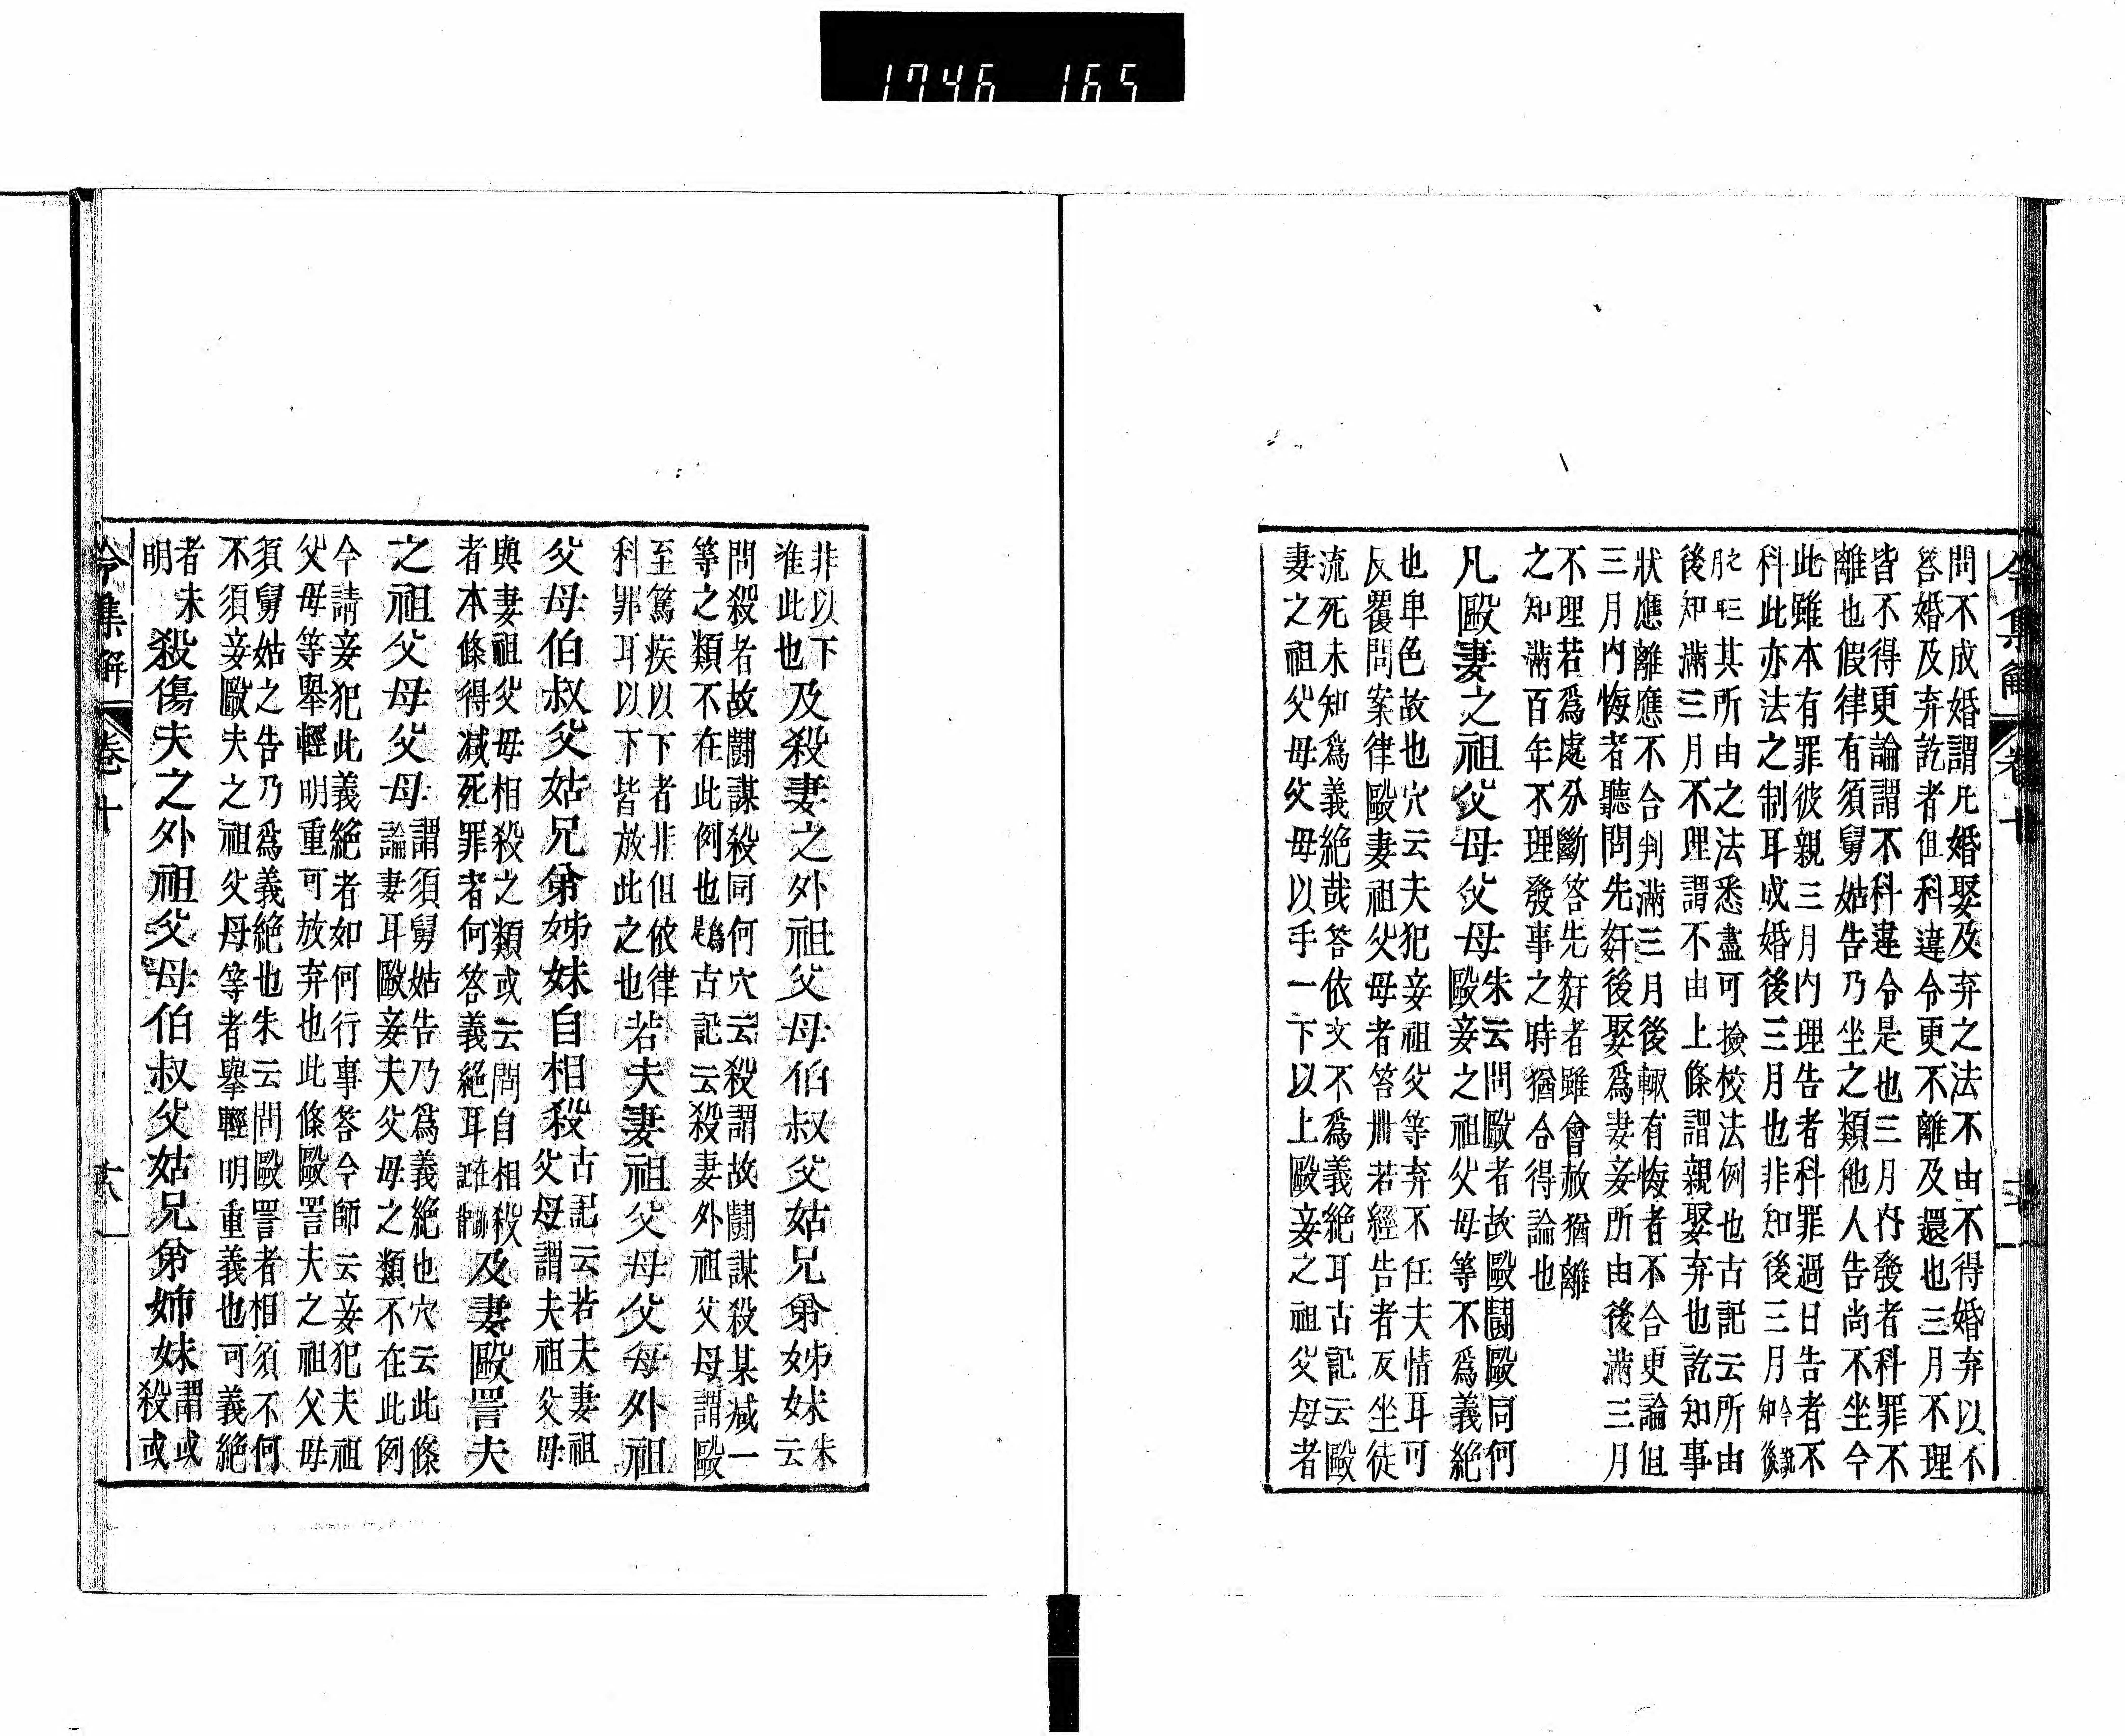 1746 165
令集解 卷十
問不成婚謂凡婚娶及弃之法不由不得婚弃以不
答婚及弃訖者但科違令更不離及還也三月不理
皆不得更論謂不科違令是也三月內發者科罪不
離也假律有須舅姑告乃坐之類他人告尚不坐今
此雖本有罪彼親三月内理告者科罪過日告者不
科此亦法之制耳成婚後三月也非知後三月
其所由之法悉盡可撿校法例也古記云所由
後知滿三月不理謂不由上條謂親娶弃也訖知事
狀應離應不合判滿三月後輙有悔者不合更論但
三月内悔者聽問先姧後娶爲妻妾所由後滿三月
不理若爲處分斷答先姧者雖會赦猶離
之知滿百年不理發事之時猶合得論也
凡毆妻之祖父母父母
朱云問毆者故毆鬪毆同何
毆妾之祖父母等不爲義絶
也卑色故也穴云夫犯妾祖父等弃不任夫情耳可
反覆問案律毆妻祖父母者笞卌若經告者反坐徒
流死未知爲義絶哉答依文不爲義絶耳古記云毆
妻之祖父母父母以手一下以上毆妾之祖父母者
非以下
准此也
及殺妻之外祖父母伯叔父姑兄弟姊妹
朱
云
問殺者故鬪謀殺同何穴云殺謂故鬪謀殺某減一
等之類不在此例也古記云殺妻外祖父母謂毆
至篤疾以下者非但依律
科罪耳以下皆放此之也
若夫妻祖父母父母外祖
父母伯叔父姑兄弟姊妹自相殺
古記云若夫妻祖
父母謂夫祖父母
與妻祖父母相殺之類或云問自相殺
者本條得減死罪者何答義絶耳
及妻毆詈夫
之祖父母父母
謂須舅姑告乃爲義絶也穴云此條
論妻耳毆妾夫父母之類不在此例
今請妾犯此義絶者如何行事答今師云妾犯夫祖
父母等舉輕明重可放弃也此條毆詈夫之祖父母
須舅姑之告乃爲義絶也朱云問毆詈者相須不何
不須妾毆夫之祖父母等者擧輕明重義也可義絶
者未
明
殺傷夫之外祖父母伯叔父姑兄弟姉妹
謂或
殺或
令集解 卷十